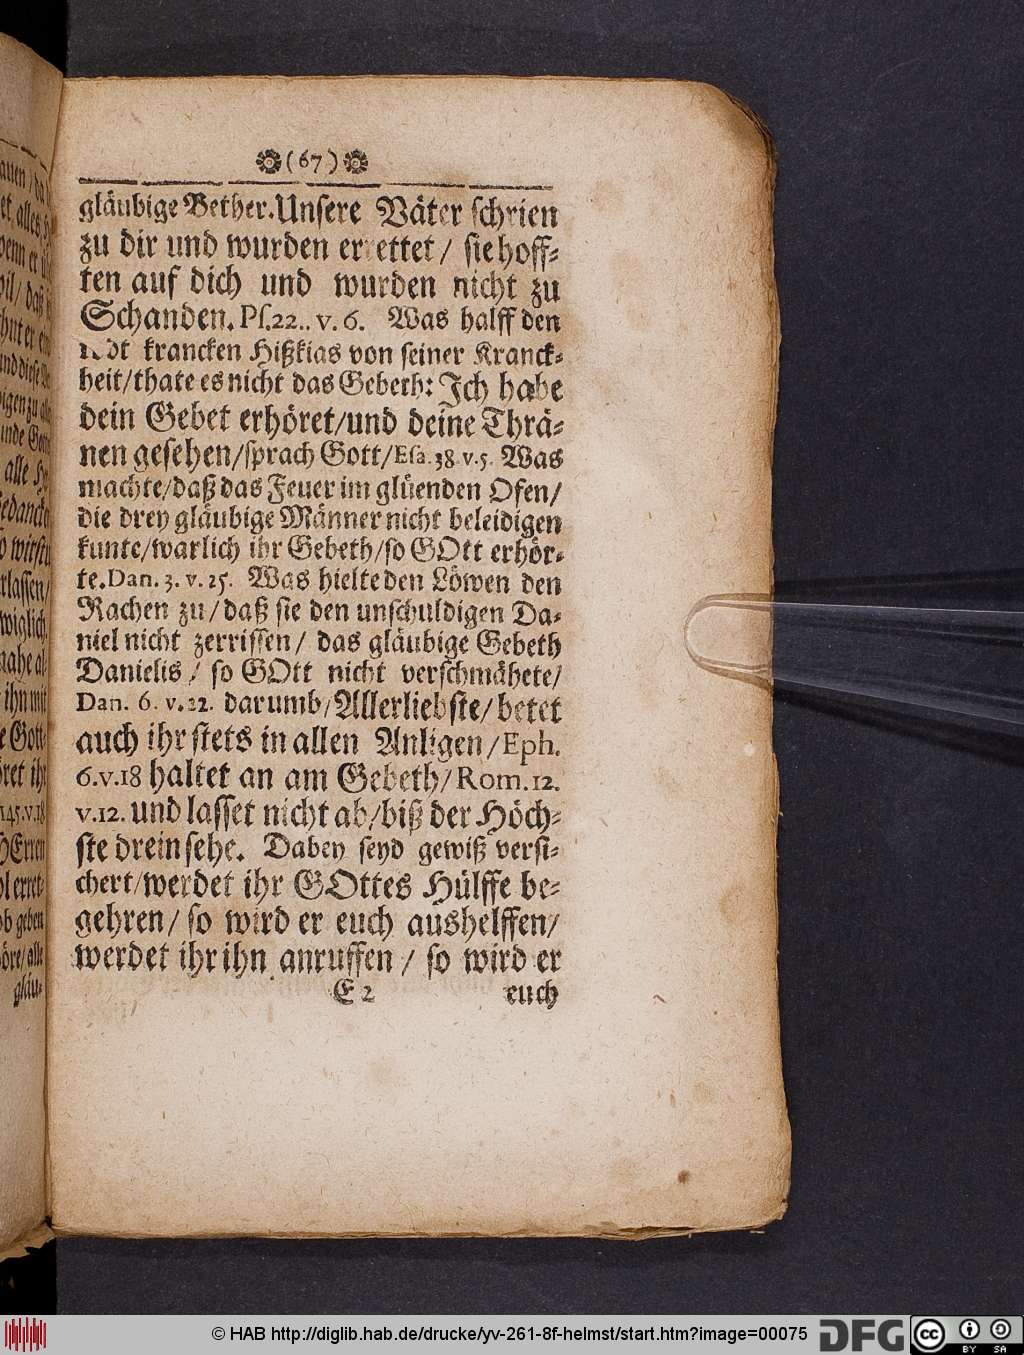 (67)
gläubige Bether. Unsere Väter schrien
zu dir und wurden errettet / sie hoff⸗
ten auf dich und wurden nicht zu
Schanden. Ps. 22.. v. 6. Was halff den
krancken Hißkias von seiner Kranck⸗
heit / thate es nicht das Gebeth: Ich habe
dein Gebet erhöret / und deine Thrä⸗
nen gesehen / sprach Gott / Esa. 38. v. 5. Was
machte / daß das Feuer im glüenden Ofen /
die drey gläubige Männer nicht beleidigen
kunte / warlich ihr Gebeth / so GOtt erhör⸗
te. Dan. 3. v. 25. Was hielte den Löwen den
Rachen zu / daß sie den unschuldigen Da⸗
niel nicht zerrissen / das gläubige Gebeth
Danielis / so GOtt nicht verschmähete /
Dan. 6. v. 22. darumb / Allerliebste / betet
auch ihr stets in allen Anligen / Eph.
6. v. 18 haltet an am Gebeth / Rom. 12.
v. 12. und lasset nicht ab / biß der Höch⸗
ste drein sehe. Dabey seyd gewiß versi⸗
chert / werdet ihr GOttes Hülffe be⸗
gehren / so wird er euch aushelffen /
werdet ihr ihn anruffen / so wird er
E 2 euch
© HAB http://diglib.hab.de/drucke/yv-261-8f-helmst/start.htm?image=00075
DFG
cc BY SA